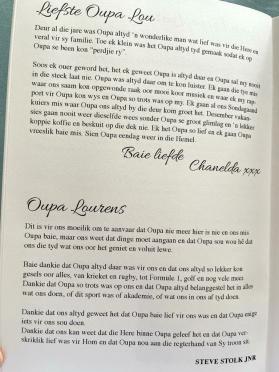 Liefste Oupa Lou
Deur al die jare was Oupa altyd 'n wonderlike man wat lief was vir die Here en
veral vir sy familie. Toe ek klein was het Oupa altyd tyd gemaak sodat ek op
Oupa se been kon "perdjie ry".
Soos ek ouer geword het, het ek geweet Oupa is altyd daar en Oupa sal my nooit
in die steek laat nie. Oupa was altyd daar om te kon luister. Ek gaan die tye mis
waar ons saam kon opgewonde raak oor mooi koor musiek en waar ek my rap-
port vir Oupa kon wys en Oupa so trots was op my. Ek gaan al ons Sondagaand
kuiers mis waar Oupa ons altyd by die deur kom groet het. Desember vakan-
sies gaan nooit weer dieselfde wees sonder Oupa se groot glimlag en 'n lekker
koppie koffie en beskuit op die dek nie. Ek het Oupa so lief en ek gaan Oupa
vreeslik baie mis. Sien Oupa eendag weer in die Hemel.
Baie liefde
Chanelda xxx
Oupa Lourens
Dit is vir ons moeilik om te aanvaar dat Oupa nie meer hier is nie en ons mis
Oupa baie, maar ons weet dat dinge moet aangaan en dat Oupa sou wou hê dat
ons die tyd wat ons oor het geniet en voluit lewe.
Baie dankie dat Oupa altyd daar was vir ons en dat ons altyd so lekker kon
gesels oor alles, van krieket en rugby, tot Formule 1, golf en nog vele meer.
Dankie dat Oupa so trots was op ons en dat Oupa altyd belanggestel het in alles
wat ons doen, of dit sport was of akademie, of wat ons in ons af tyd doen.
Dankie dat ons altyd geweet het dat Oupa baie lief vir ons was en dat Oupa enige
iets vir ons sou doen.
Dankie dat ons kan weet dat die Here binne Oupa geleef het en dat Oupa ver-
skriklik lief was vir Hom en dat Oupa nou aan die regterhand van Sy troon sit.
STEVE STOLK JNR